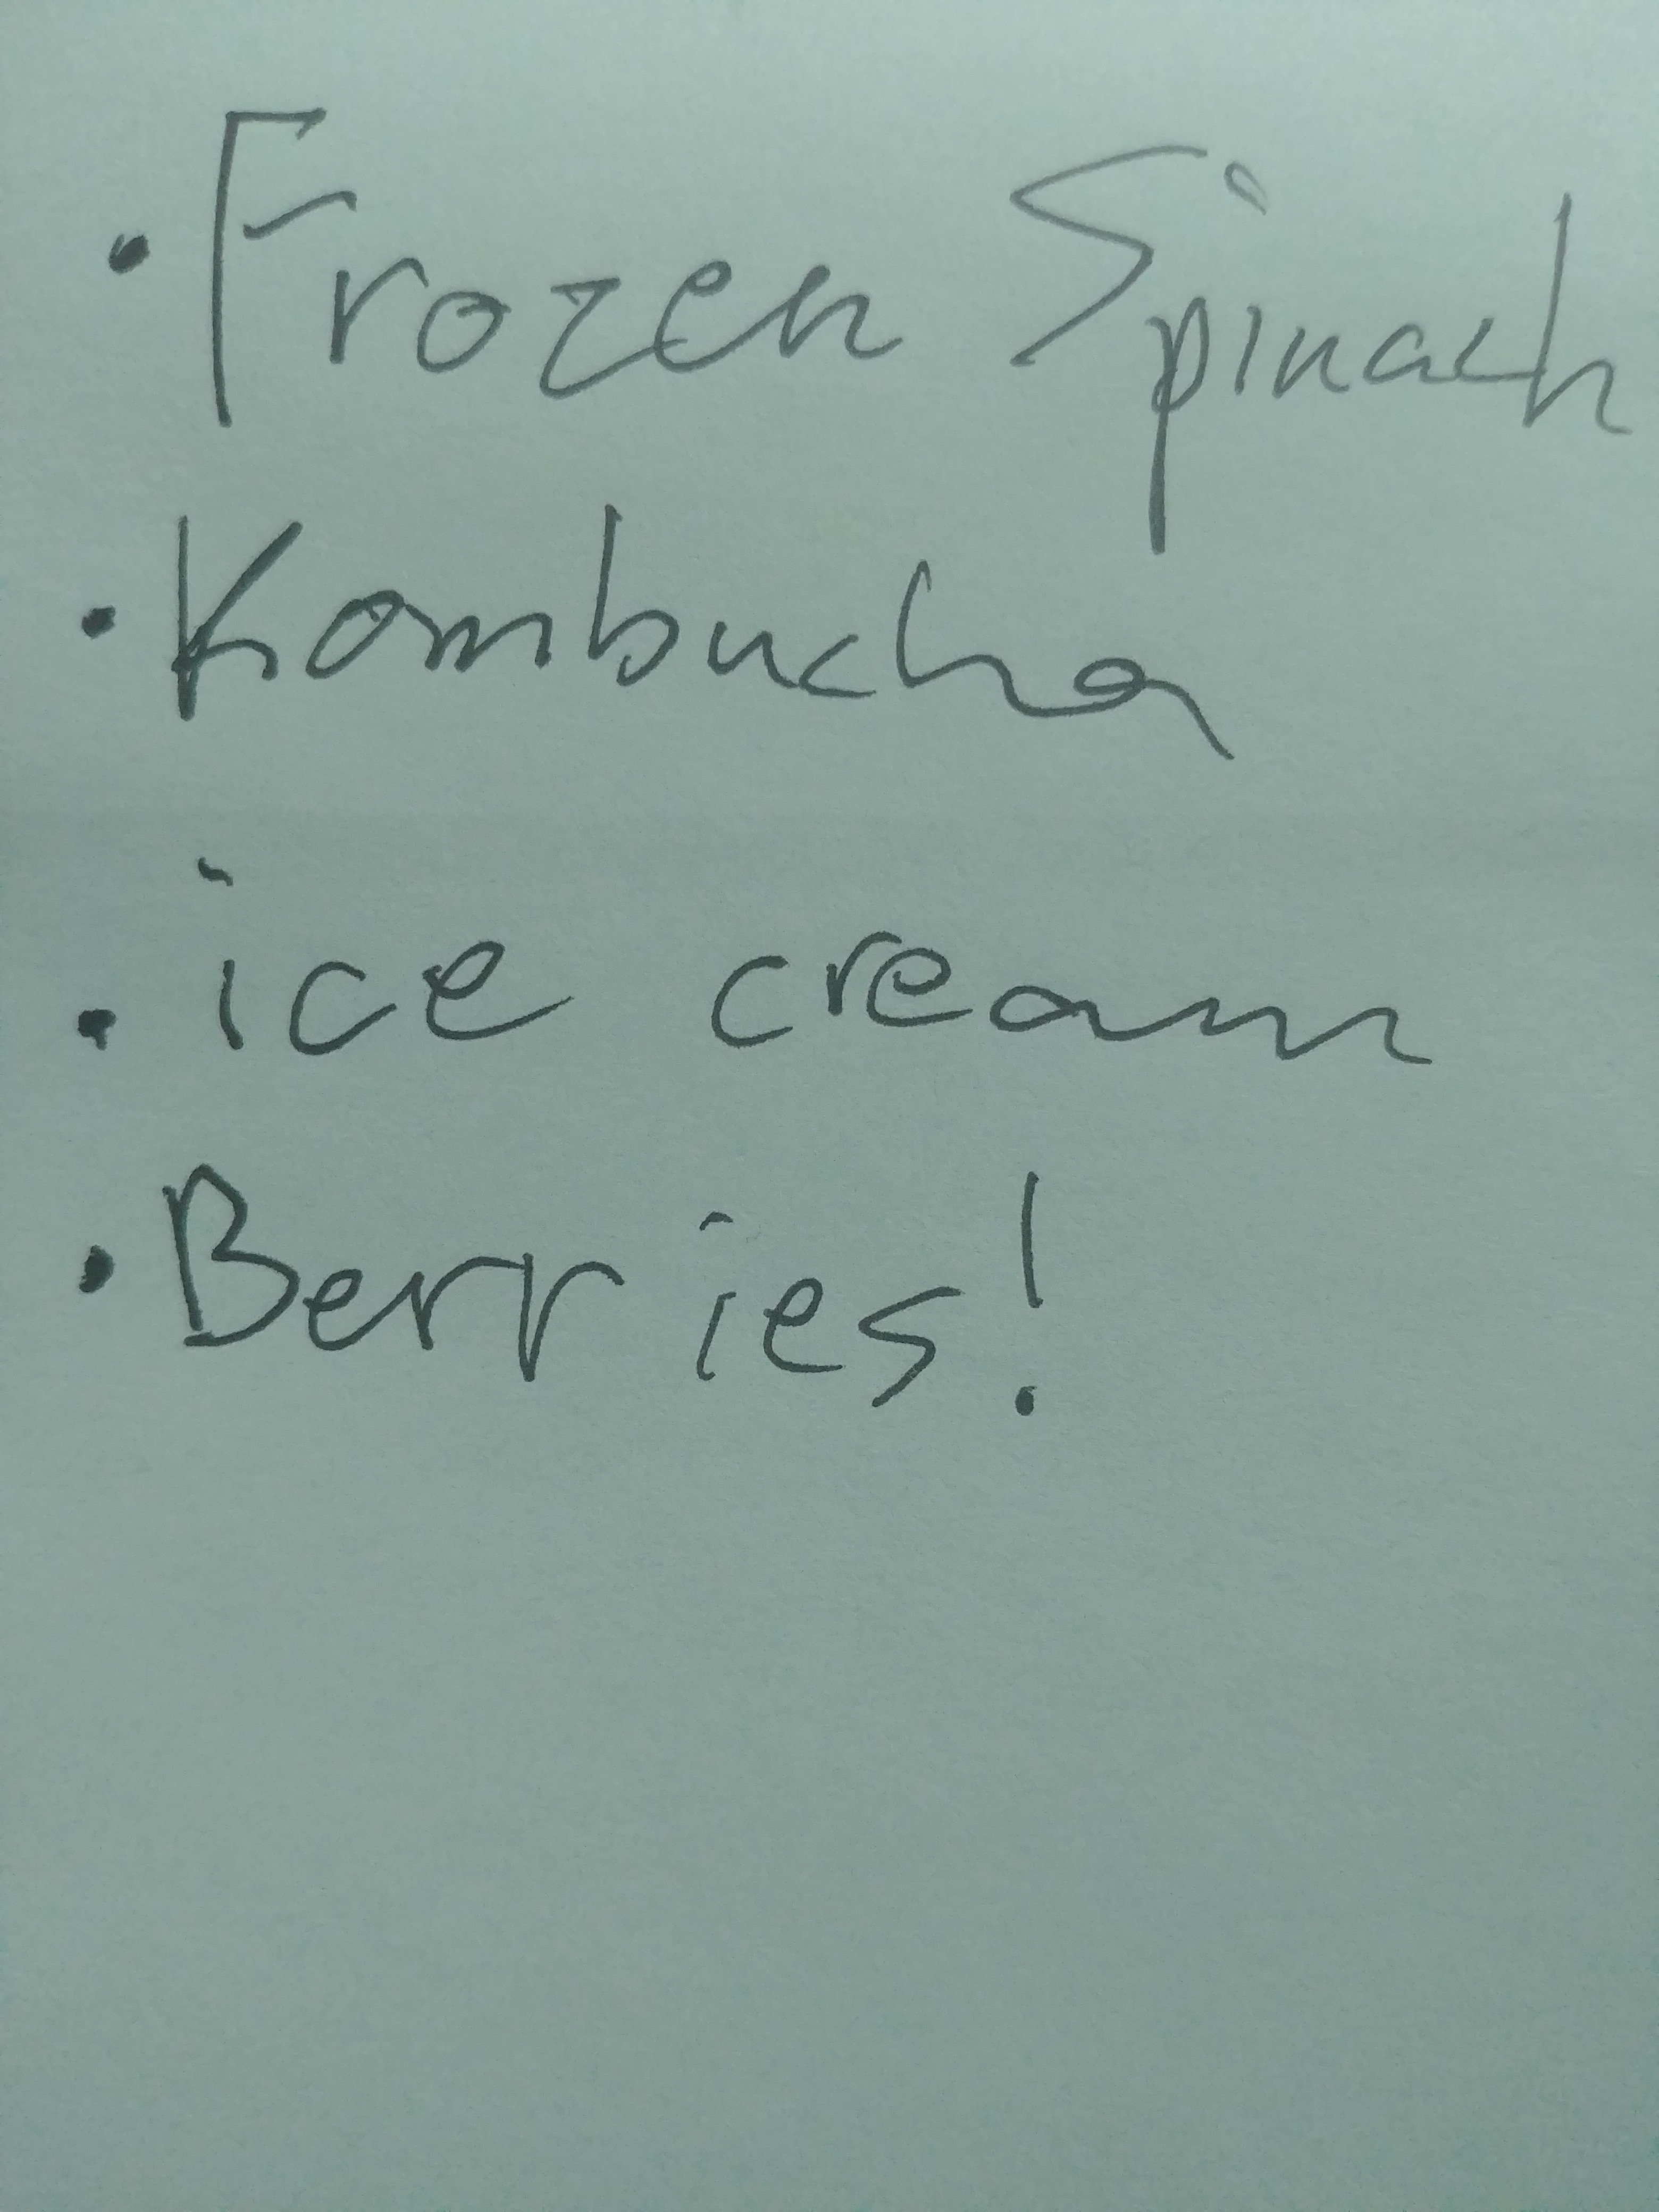 · Frozen Spinach
· Kombucha
· ice cream
· Berries!